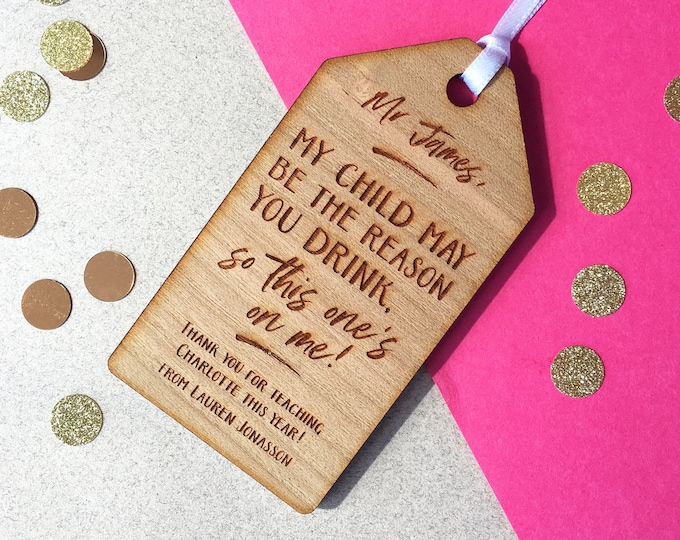 Mr James,
MY CHILD MAY
BE THE REASON
YOU DRINK,
so this one's
on me!
THANK YOU FOR TEACHING
CHARLOTTE THIS YEAR!
FROM LAUREN JONASSON